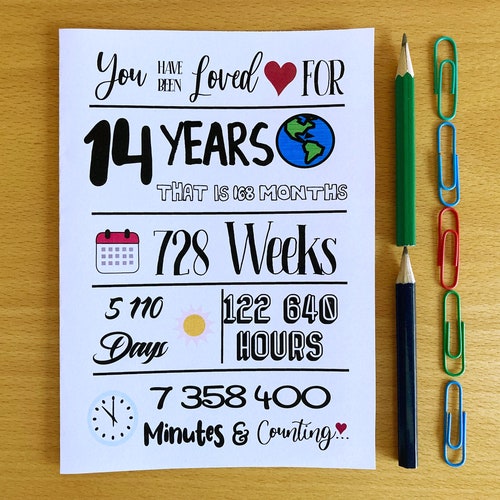 You HAVE BEEN Loved FOR
14 YEARS
THAT IS 168 MONTHS
728 Weeks
5 110 Days
122 640 HOURS
7 358 400
Minutes & Counting...